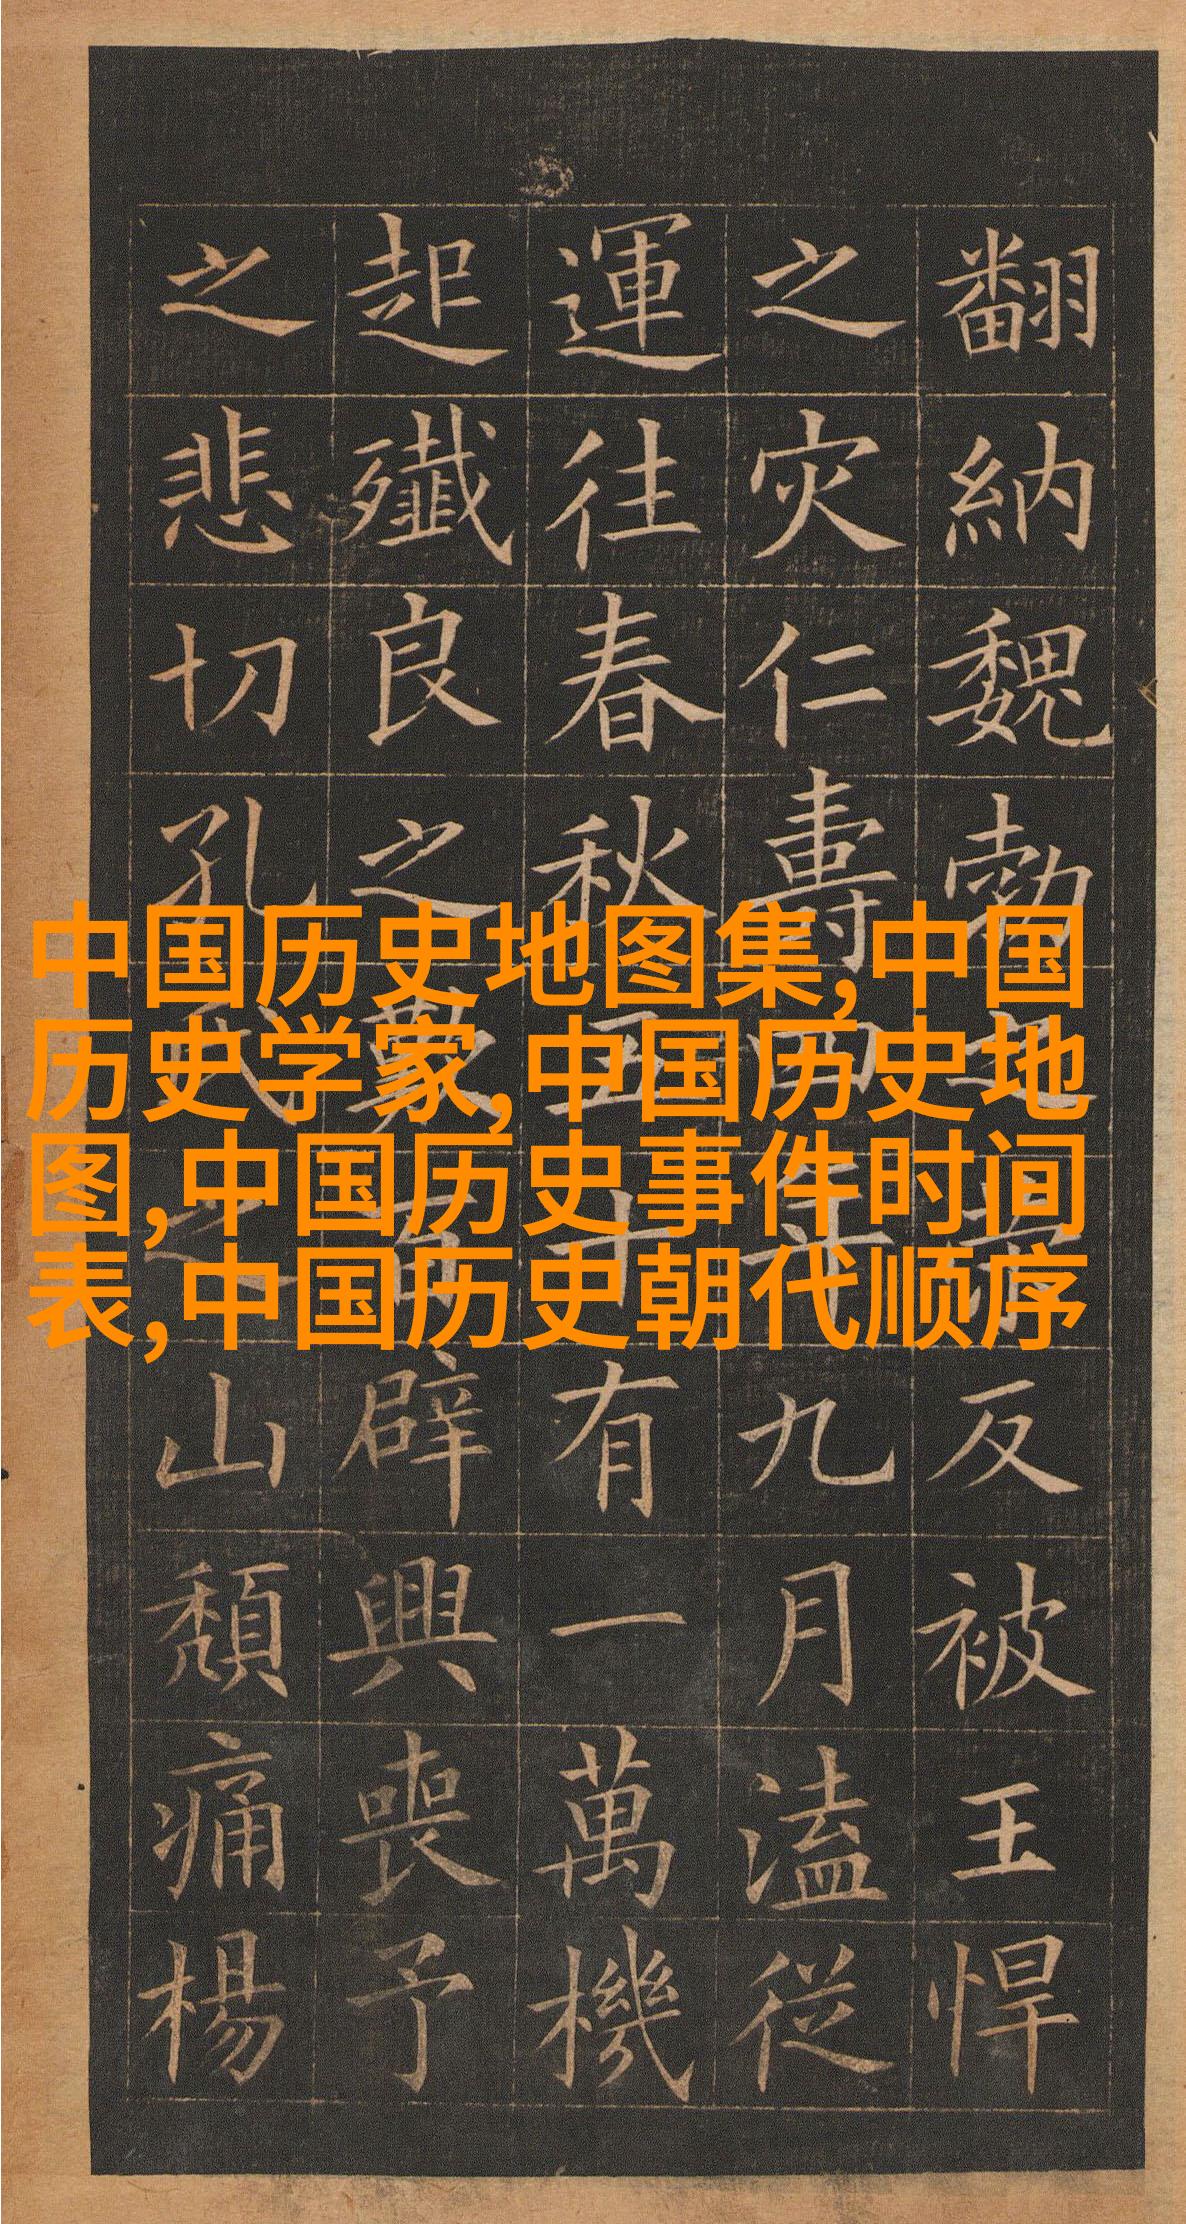 翻納魏勃之反被王悍
之灾仁壽四年九月溘從
運往春秋五十有一萬機
起殲良之歎百辟興喪予
之悲切孔氏之山頹痛楊
中国历史地图集,中国
历史学家,中国历史地
图,中国历史事件时间
表,中国历史朝代顺序